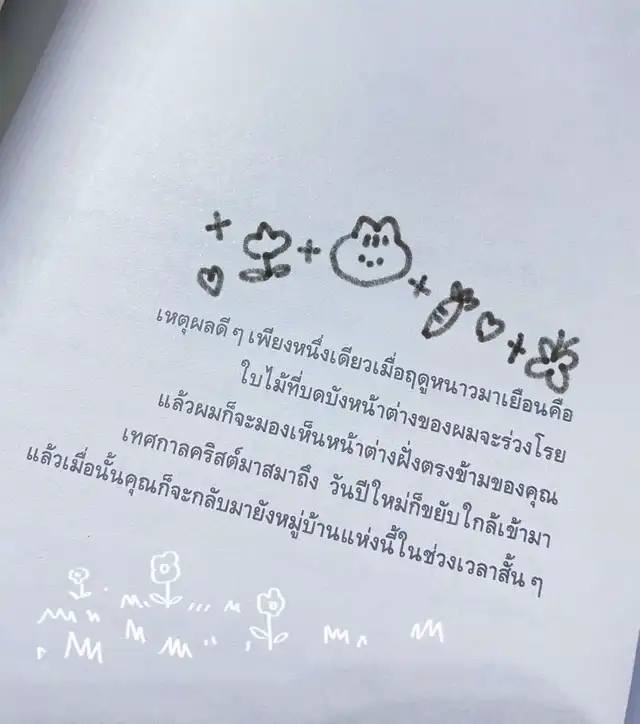 เหตุผลดี ๆ เพียงหนึ่งเดียวเมื่อฤดูหนาวมาเยือนคือ
ใบไม้ที่บดบังหน้าต่างของผมจะร่วงโรย
แล้วผมก็จะมองเห็นหน้าต่างฝั่งตรงข้ามของคุณ
เทศกาลคริสต์มาสมาถึง วันปีใหม่ก็ขยับใกล้เข้ามา
แล้วเมื่อนั้นคุณก็จะกลับมายังหมู่บ้านแห่งนี้ในช่วงเวลาสั้น ๆ